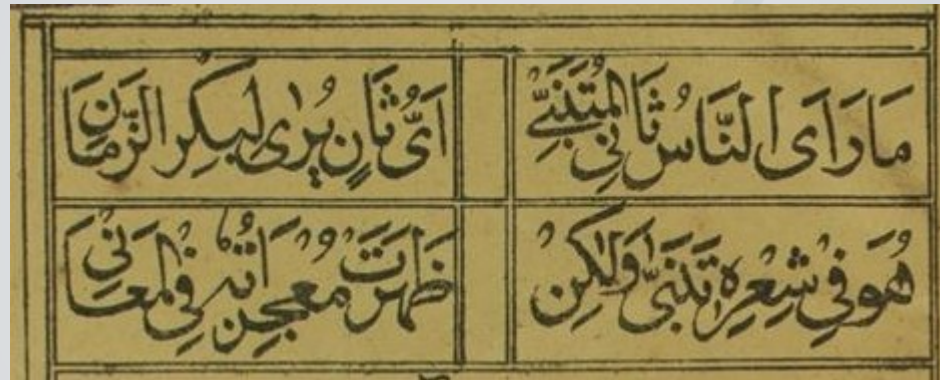 مَا رَاَى النَّاسُ ثَانِي المُتَنَبِّي اَىُّ ثَانٍ يُرٰى لِبِكْرِ الزَّمَانِ
هُوَ فِي شِعْرِهِ تَنَبّٰى وَلٰكِنْ ظَهَرَتْ مُعْجِزَاتُهُ فِي المَعَانِي